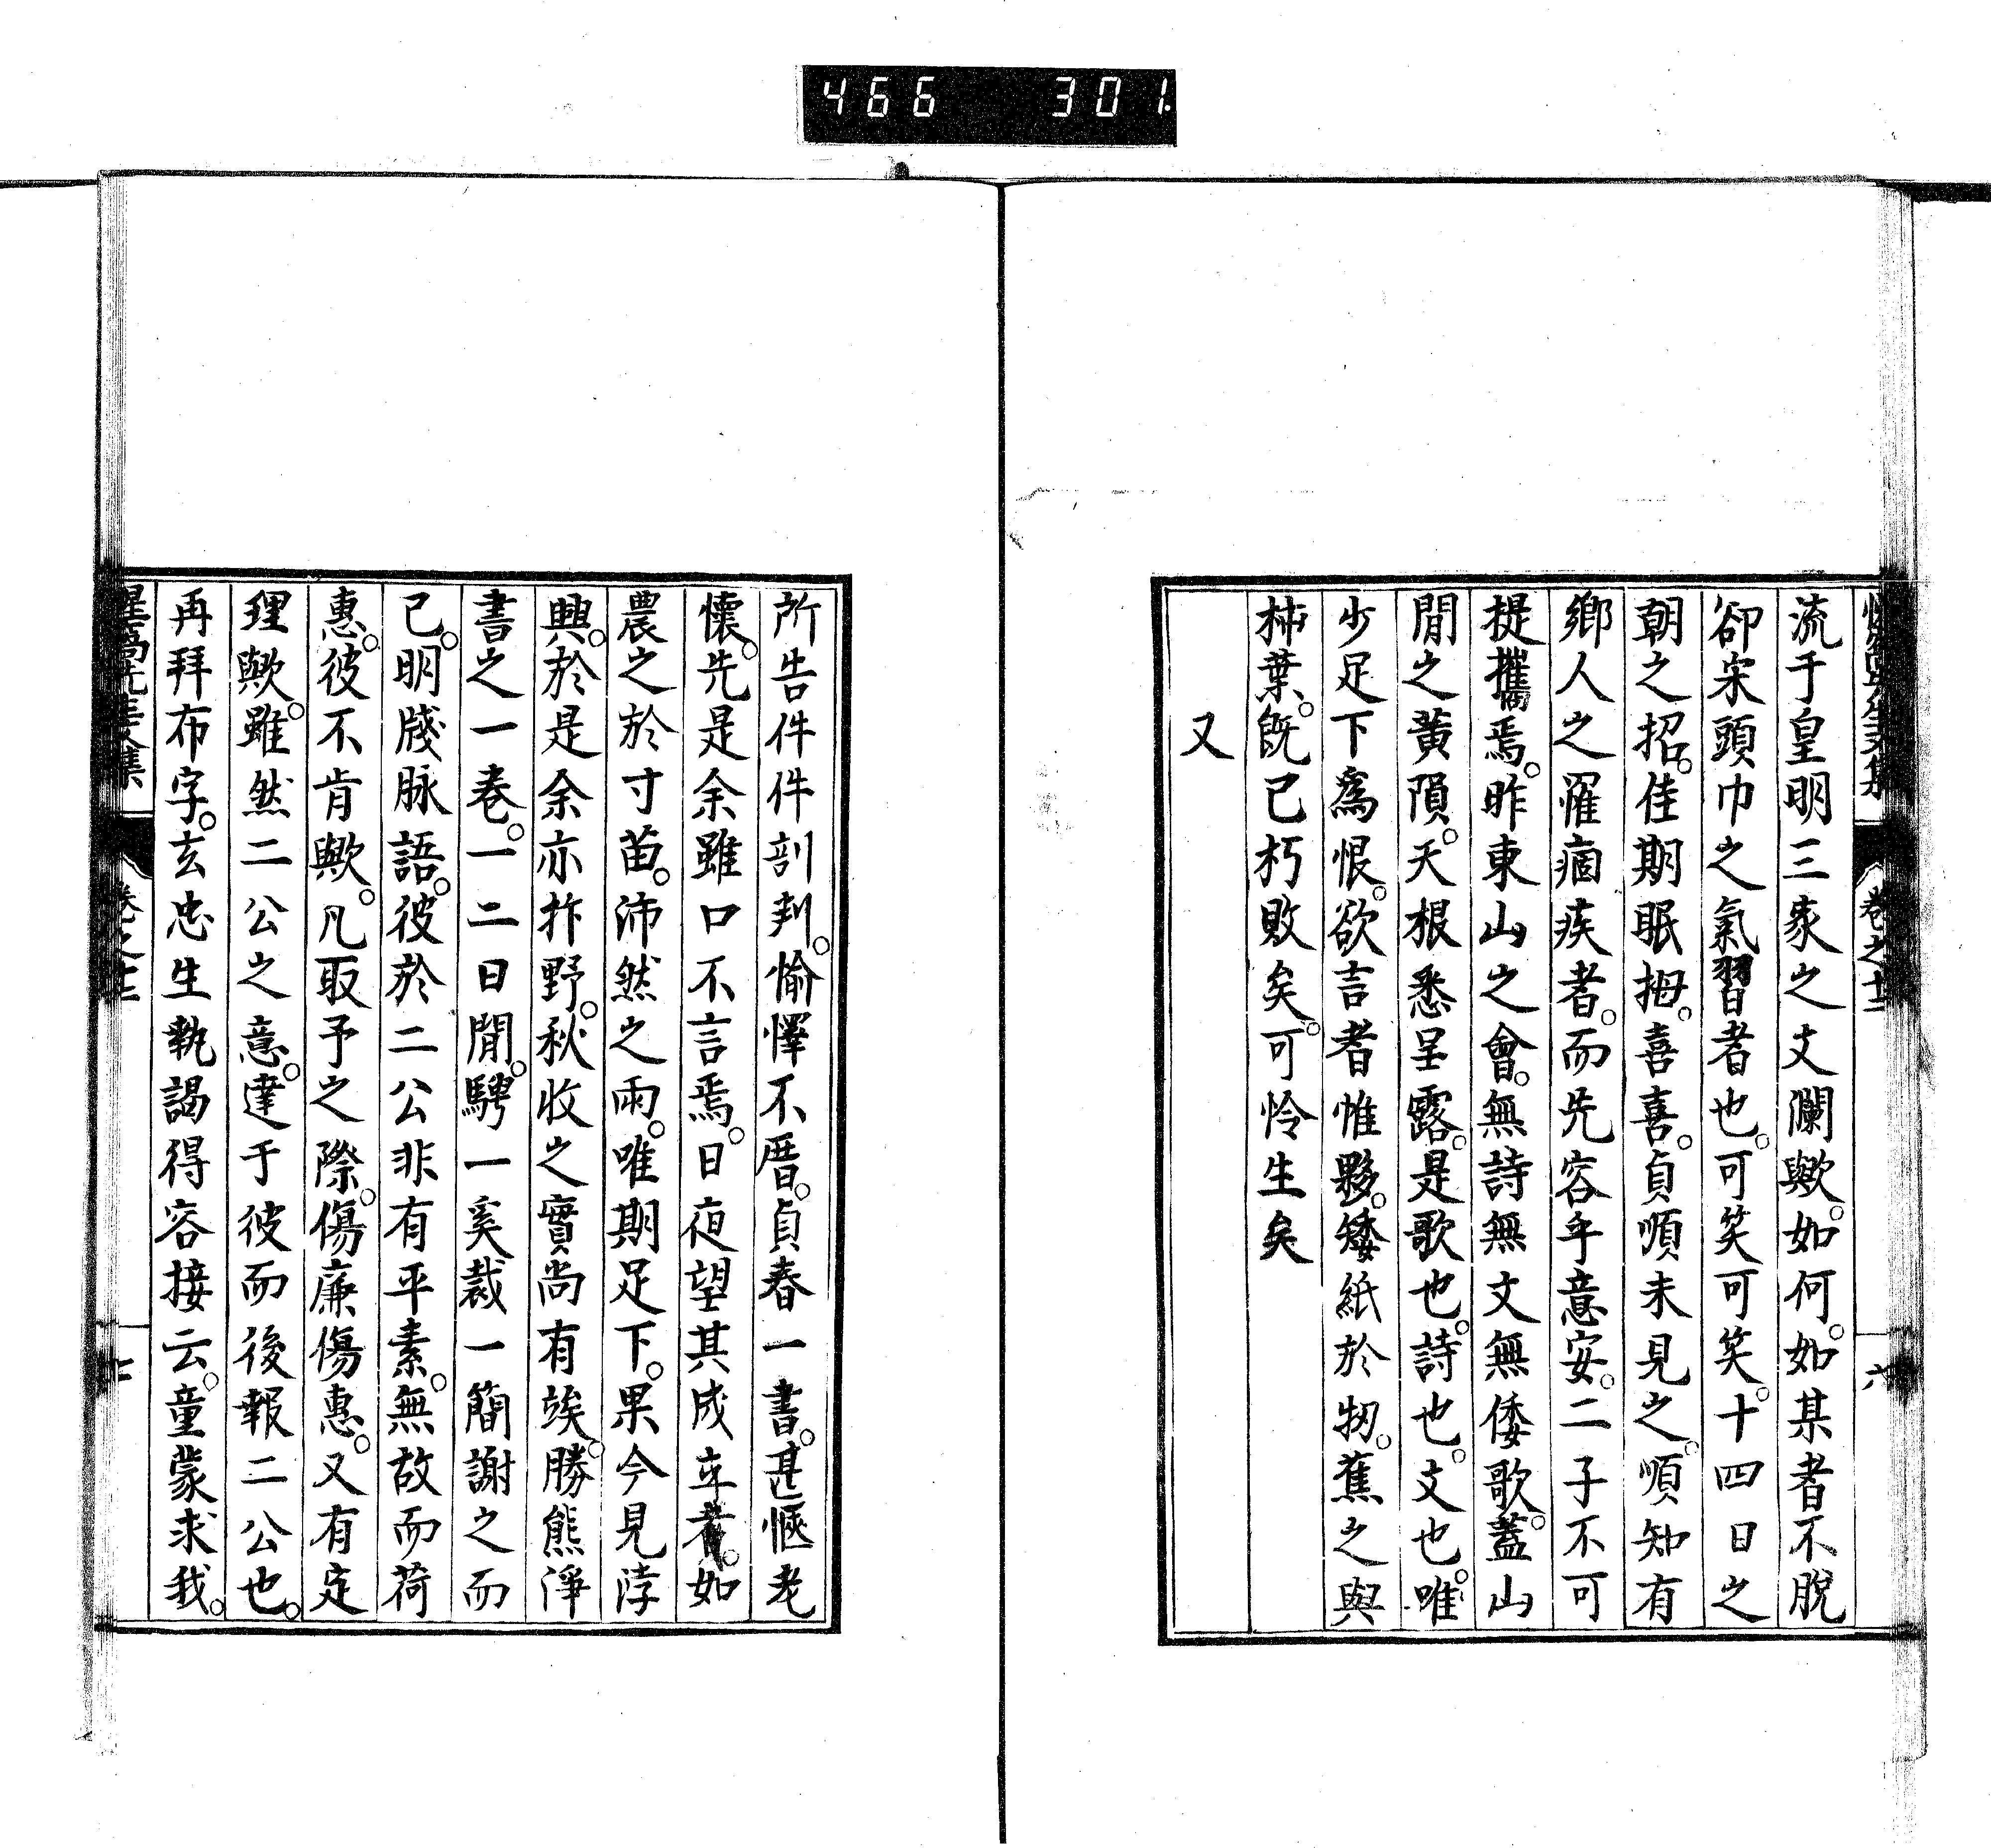 466 301
流于皇明三家之文瀾歟。如何。如某者不脫
卻宋頭巾之氣習者也。可笑可笑。十四日之
朝之招。佳期眠拇。喜喜。貞順未見之。順知有
鄉人之罹痼疾者。而先容乎意安。二子不可
提攜焉。昨東山之會。無詩無文無倭歌。蓋山
間之黃隕。天根悉呈露。是歌也。詩也。文也。唯
少足下爲恨。欲言者惟夥。矮紙於物。蕉之與
柿葉。旣已朽敗矣。可怜生矣
又
卷之十二
六
所告件件剖判。愉懌不厝。貞春一書。甚愜老
懷。先是余雖口不言焉。日夜望其成立者。如
農之於寸苗。沛然之雨。唯期足下。果今見浡
興。於是余亦抃野。秋收之實尚有竢。勝熊淨
書之一卷。一二日間。騁一奚裁一簡謝之而
已。明牋脉語。彼於二公非有平素。無故而荷
惠。彼不肯歟。凡取予之際。傷廉傷惠。又有定
理歟。雖然二公之意。達于彼而後報二公也。
再拜布字。玄忠生執謁得容接云。童蒙求我。